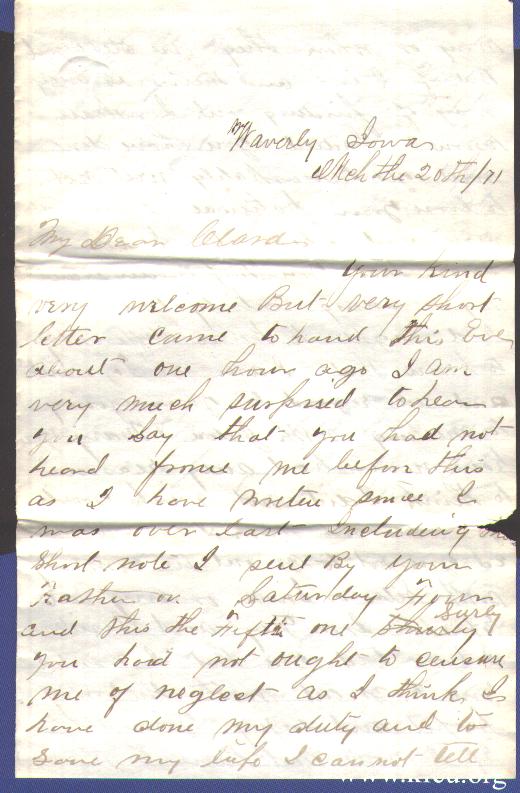 Waverly Iowa
Mch the 20th/71
My Dear Clara
Your kind
very welcome But very short
letter came to hand this Eve
about one hour ago I am
very much surprised to hear
you say that you had not
heard frome me before this
as I have writen since I
was over last Including one
short note I sent By your
Father on Saturday Four
and this the Fifth one Surely
you had not ought to censure
me of neglect as I think I
have done my duty and to
save my life I cannot tell
www.kfcd.org